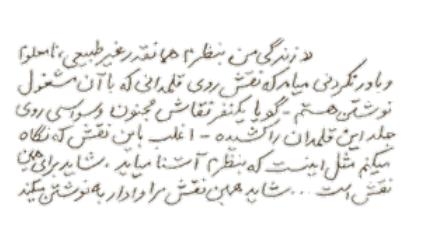 از زندگی من بنظرم همانقدر غیر طبیعی، نامعلوم
و باور نکردنی میامد که نقش روی قلمدانی که با آن مشغول
نوشتن هستم - گویا یکنفر نقاش مجنون وسواسی روی
جلد این قلمدان را کشیده - اغلب باین نقش که نگاه
میکنم مثل اینست که بنظرم آشنا میاید. شاید برای همین
نقش است... شاید همین نقش مرا وادار به نوشتن میکند